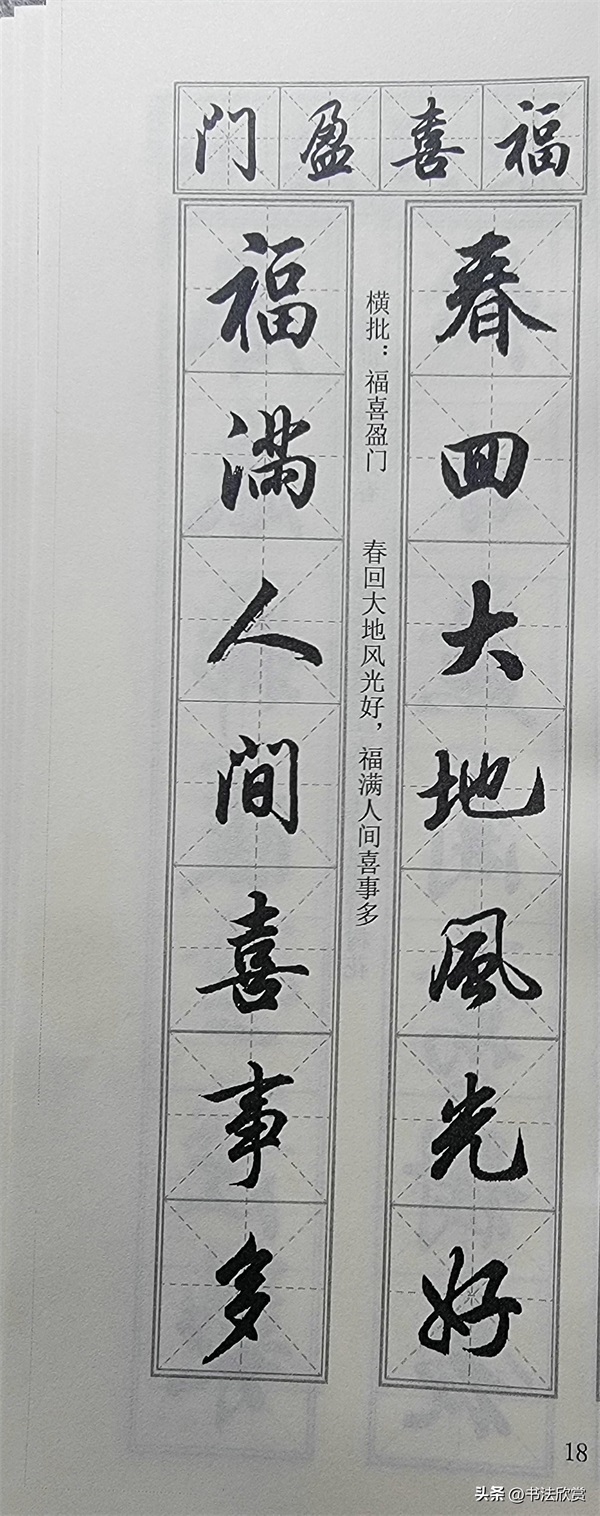 福喜盈门
春回大地風光好
横批：福喜盈门 春回大地风光好，福满人间喜事多
福满人间喜事多
18
头条 @书法欣赏